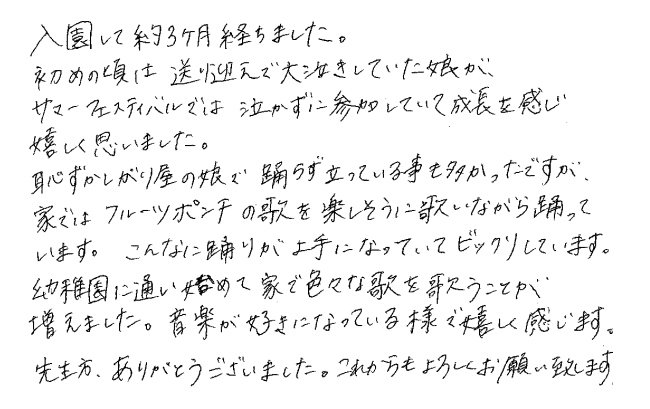 入園して約3ケ月経ちました。
初めの頃は 送り迎えで大泣きしていた娘が、
サマーフェスティバルでは 泣かずに参加していて成長を感じ
嬉しく思いました。
恥ずかしがり屋の娘で 踊らず立っている事も多かったですが、
家では フルーツポンチの歌を楽しそうに歌いながら踊って
います。 こんなに踊りが上手になっていてビックリしています。
幼稚園に通い始めて 家で色々な歌を歌うことが
増えました。音楽が好きになっている様で嬉しく感じます。
先生方、ありがとうございました。これからもよろしくお願い致します